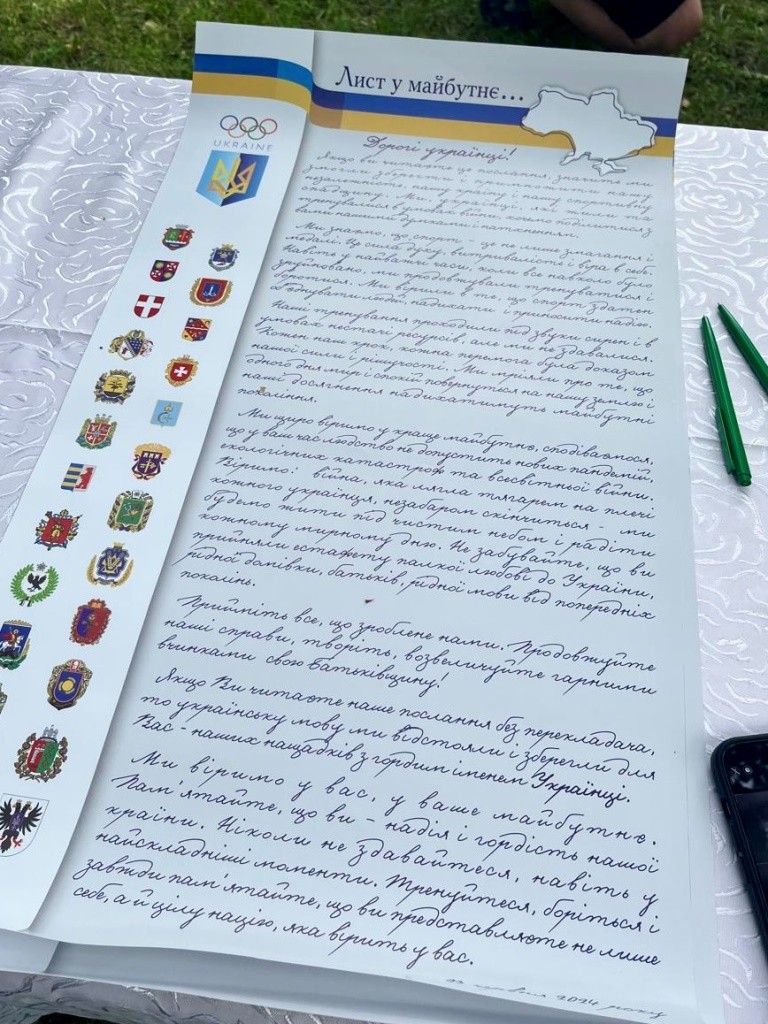 Лист у майбутнє...
UKRAINE
Дорогі українці!
Якщо ви читаєте це послання, значить ми
змогли зберегти і примножити нашу
незалежність, нашу країну і нашу спортивну
спадщину. Ми, українці, які жили та
тренувалися в умовах війни, хочемо поділитися з
вами нашими думками і натхненням.
Ми знаємо, що спорт - це не лише змагання і
медалі. Це сила духу, витривалість і віра в себе.
Навіть у найважчі часи, коли все навколо було
зруйновано, ми продовжували тренуватися і
боротися. Ми вірили в те, що спорт здатен
об'єднувати людей, надихати і приносити надію.
Наші тренування проходили під звуки сирен і в
умовах нестачі ресурсів, але ми не здавалися.
Кожен наш крок, кожна перемога була доказом
нашої сили і рішучості. Ми мріяли про те, що
одного дня мир і спокій повернуться на нашу землю і
наші досягнення надихатимуть майбутні
покоління.
Ми щиро віримо у краще майбутнє, сподіваємося,
що у ваш час людство не допустить нових пандемій,
екологічних катастроф та всесвітньої війни.
Віримо: війна, яка лягла тягарем на плечі
кожного українця, незабаром скінчиться - ми
будемо жити під чистим небом і радіти
кожному мирному дню. Не забувайте, що ви
прийняли естафету палкої любові до України,
рідної домівки, батьків, рідної мови від попередніх
поколінь.
Прийміть все, що зроблене нами. Продовжуйте
наші справи, творіть, возвеличуйте гарними
вчинками свою Батьківщину!
Якщо Ви читаєте наше послання без перекладача,
то українську мову ми відстояли і зберегли для
Вас - наших нащадків з гордим іменем Українці.
Ми віримо у вас, у ваше майбутнє.
Пам'ятайте, що ви - надія і гордість нашої
країни. Ніколи не здавайтеся, навіть у
найскладніші моменти. Тренуйтеся, боріться і
завжди пам'ятайте, що ви представляєте не лише
себе, а й цілу націю, яка вірить у вас.
червня 2024 року